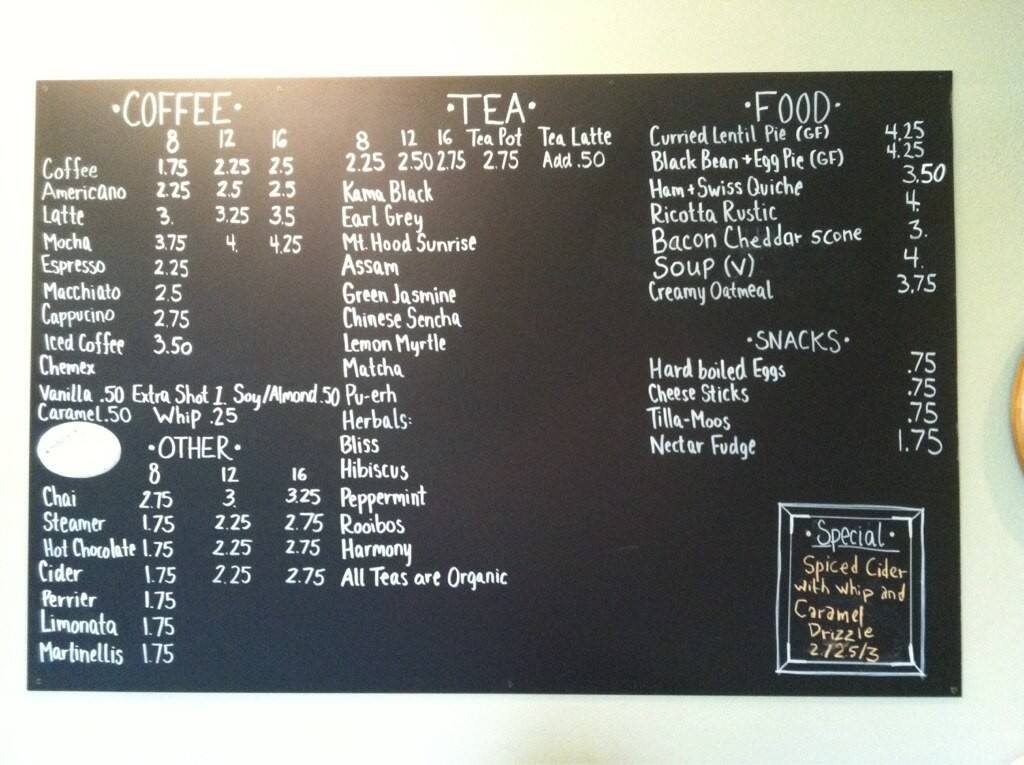 ·COFFEE·
8 12 16
Coffee 1.75 2.25 2.5
Americano 2.25 2.5 2.5
Latte 3. 3.25 3.5
Mocha 3.75 4. 4.25
Espresso 2.25
Macchiato 2.5
Cappucino 2.75
Iced Coffee 3.50
Chemex
Vanilla .50 Extra Shot 1 Soy/Almond .50
Caramel .50 Whip .25
·OTHER·
8 12 16
Chai 2.75 3. 3.25
Steamer 1.75 2.25 2.75
Hot Chocolate 1.75 2.25 2.75
Cider 1.75 2.25 2.75
Perrier 1.75
Limonata 1.75
Martinellis 1.75
·TEA·
8 12 16 Tea Pot Tea Latte
2.25 2.50 2.75 2.75 Add .50
Kama Black
Earl Grey
Mt. Hood Sunrise
Assam
Green Jasmine
Chinese Sencha
Lemon Myrtle
Matcha
Pu-erh
Herbals:
Bliss
Hibiscus
Peppermint
Rooibos
Harmony
All Teas are Organic
·FOOD·
Curried Lentil Pie (GF) 4.25
Black Bean + Egg Pie (GF) 4.25
Ham + Swiss Quiche 3.50
Ricotta Rustic 4.
Bacon Cheddar scone 3.
Soup (V) 4.
Creamy Oatmeal 3.75
·SNACKS·
Hard boiled Eggs .75
Cheese Sticks .75
Tilla-Moos .75
Nectar Fudge 1.75
·Special·
Spiced Cider
with whip and
Caramel
Drizzle
2/2.5/3